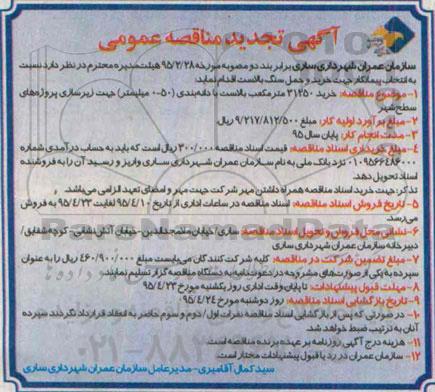 آگهی تجدید مناقصه عمومی
سازمان عمران شهرداری ساری برابر بند دو مصوبه مورخه ۹۵/۲/۲۸ هیئت مدیره محترم در نظر دارد نسبت
به انتخاب پیمانکار جهت خرید و حمل سنگ بالاست اقدام نماید:
۱- موضوع مناقصه: خرید ۳۱۲۵۰ مترمکعب بالاست با دانه‌بندی (۵۰-۰ میلیمتر) جهت زیرسازی پروژه‌های
سطح شهر
۲- مبلغ برآورد اولیه کار: مبلغ ۹/۲۱۷/۸۱۲/۵۰۰ ریال
۳- مدت انجام کار: پایان سال ۹۵
۴- مبلغ خریداری اسناد مناقصه: قیمت اسناد مناقصه ۳۰۰/۰۰۰ ریال است که باید به حساب درآمدی شماره
۰۱۰۹۵۶۶۴۸۶۰۰۰ نزد بانک ملی به نام سازمان عمران شهرداری ساری واریز و رسید آن را به فروشنده
اسناد تحویل دهد.
تذکر: جهت خرید اسناد مناقصه همراه داشتن مهر شرکت جهت مهر و امضای تعهد الزامی می‌باشد.
۵- تاریخ فروش اسناد مناقصه: اسناد مناقصه در ساعات اداری از تاریخ ۹۵/۴/۱۰ لغایت ۹۵/۴/۲۳ به فروش
می‌رسد.
۶- نشانی محل فروش و تحویل اسناد مناقصه: ساری/خیابان ملامجدالدین- خیابان آتش‌نشانی- کوچه شقایق/
دبیرخانه سازمان عمران شهرداری ساری
۷- مبلغ تضمین شرکت در مناقصه: کلیه شرکت کنندگان می‌بایست مبلغ ۴۶۰/۹۰۰/۰۰۰ ریال را به عنوان
سپرده به یکی از صورت‌های مشروحه در دعوت‌نامه به دستگاه مناقصه گزار تسلیم نمایند.
۸- مهلت قبول پیشنهادات: تا پایان وقت اداری روز یکشنبه مورخ ۹۵/۴/۲۳
۹- تاریخ بازگشایی اسناد مناقصه: روز دوشنبه مورخ ۹۵/۴/۲۴
۱۰- در صورتی که پس از بازگشایی اسناد مناقصه نفرات اول/ دوم و سوم حاضر به انعقاد قرارداد نگردند سپرده
آنان به ترتیب ضبط خواهد شد.
۱۱- هزینه درج آگهی روزنامه بر عهده برنده مناقصه است.
۱۲- سازمان عمران در رد یا قبول پیشنهادات مختار است.
سید کمال آقامیری- مدیرعامل سازمان عمران شهرداری ساری
ParsNamadData